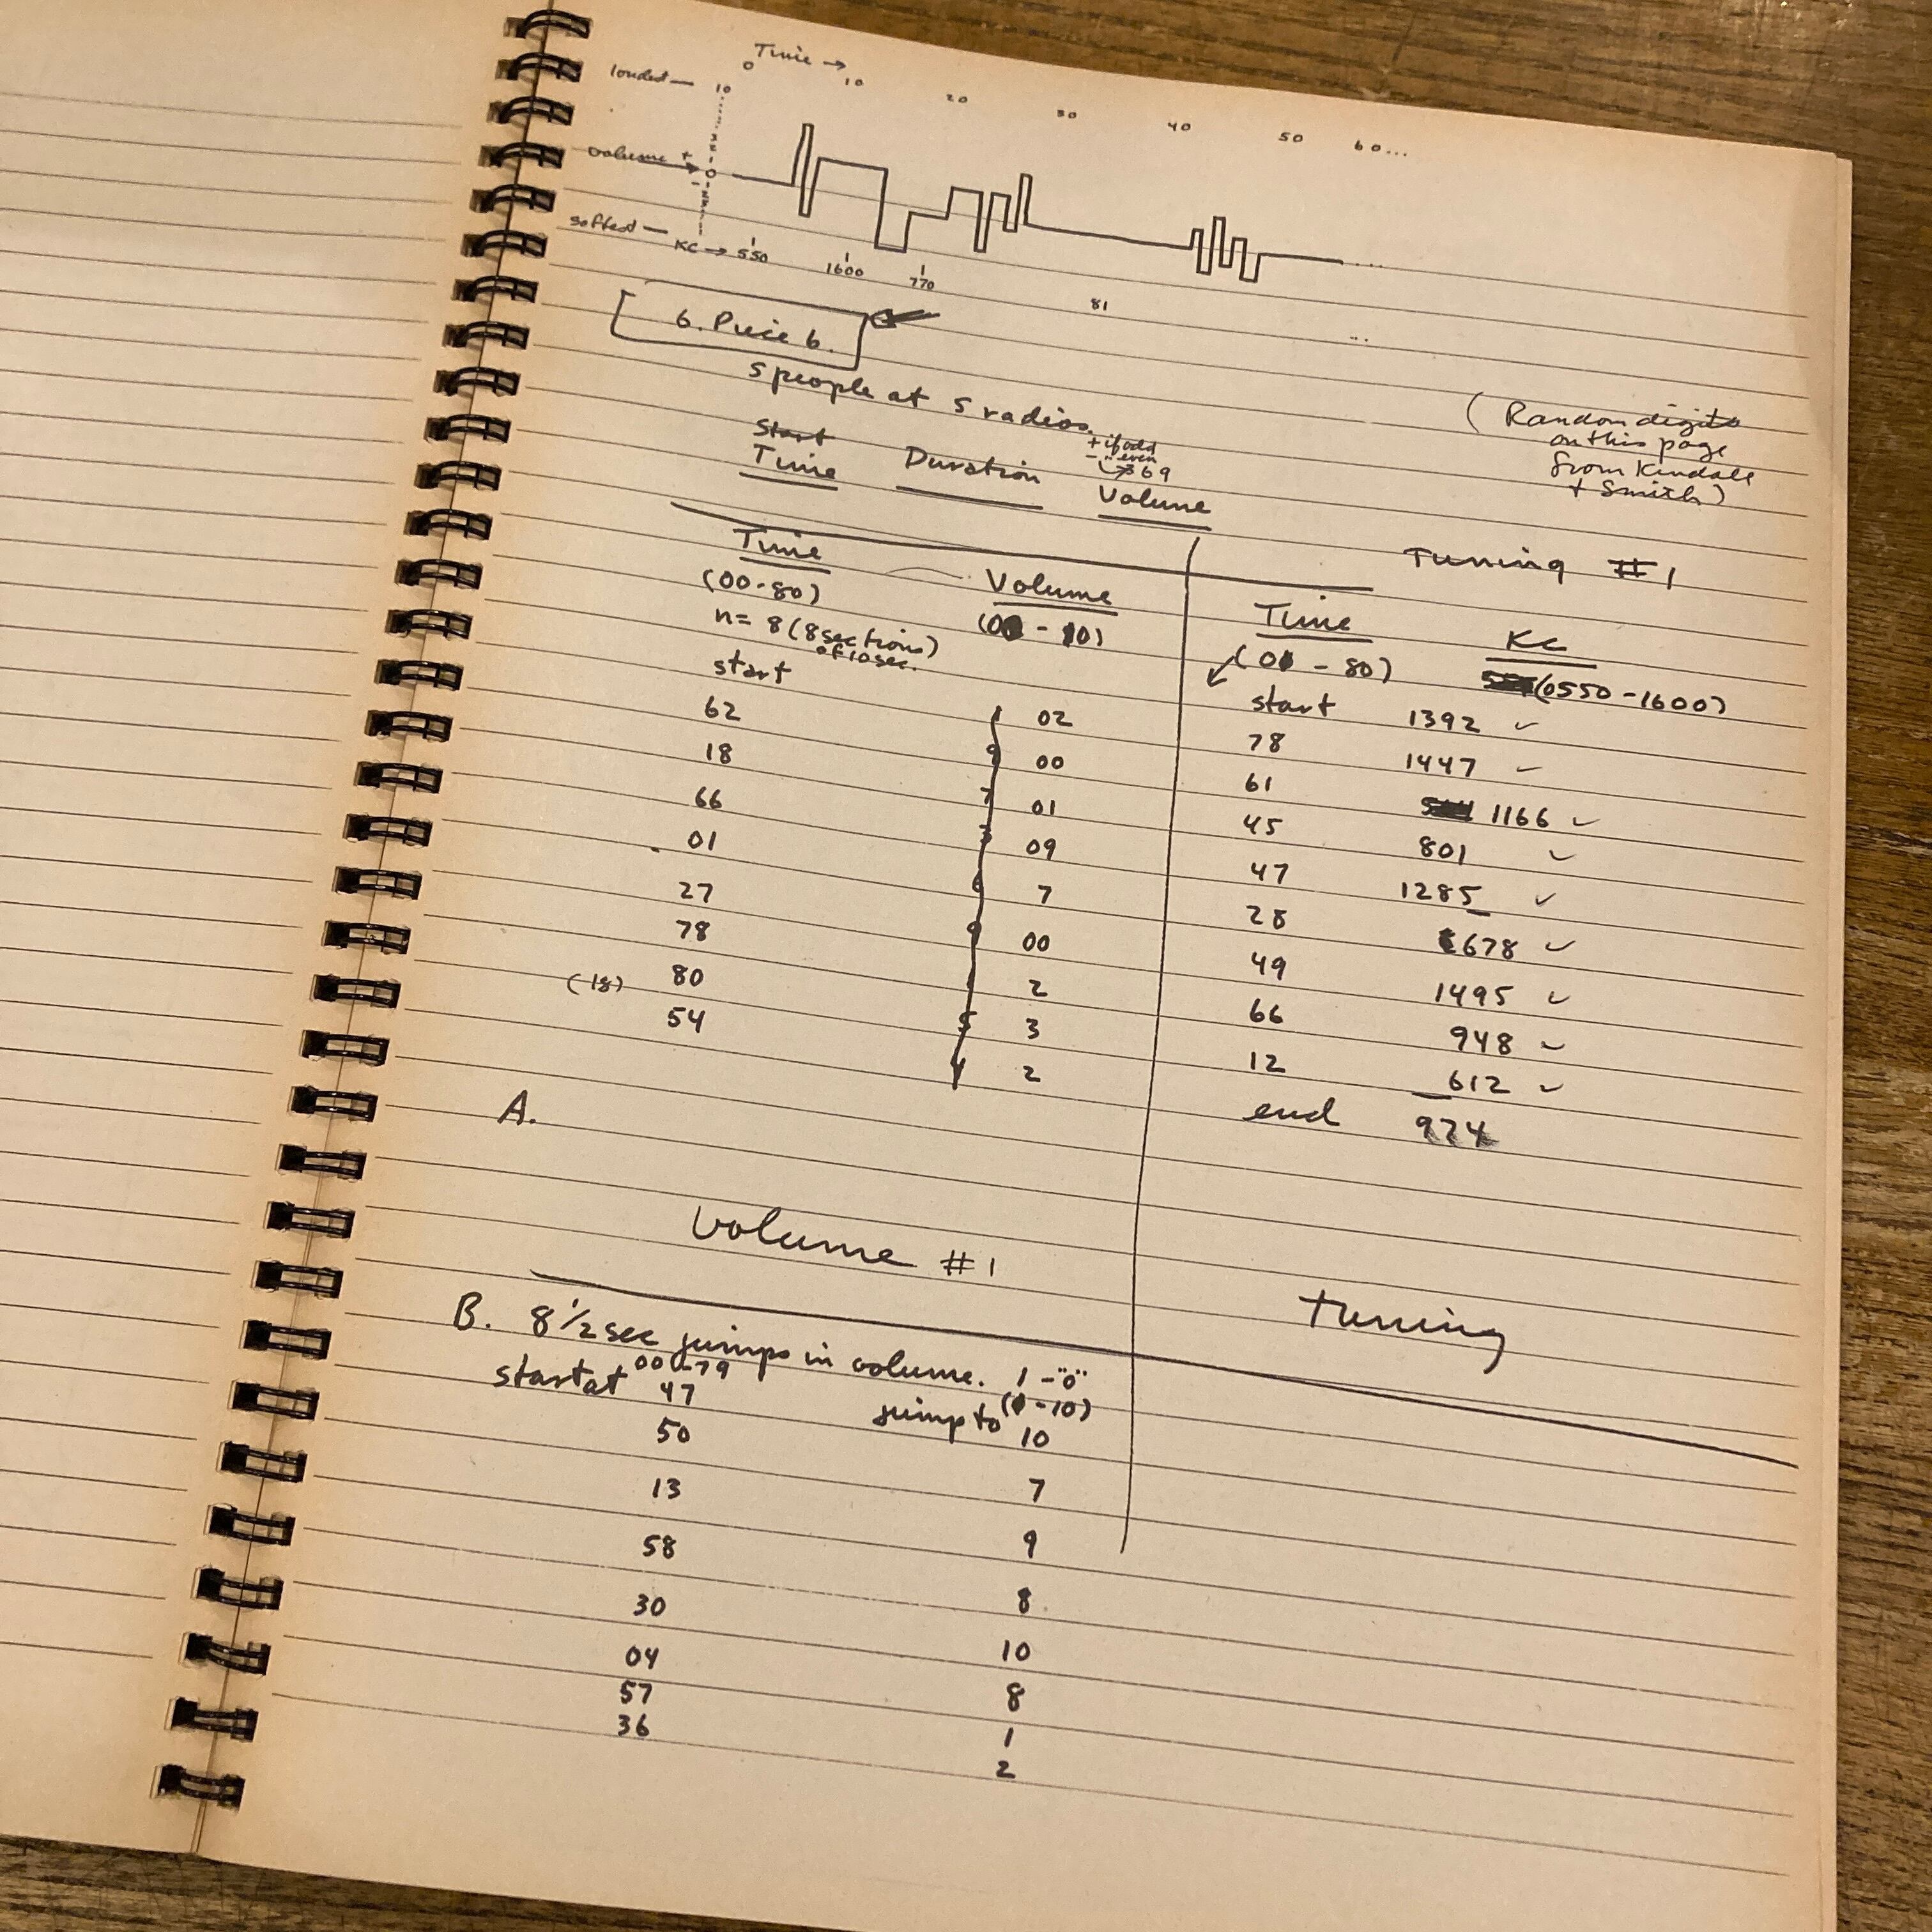 Time →
loudest — 10 0 10 20 30 40 50 60...
volume + → 0
-
softest —
KC → 550 1600 770 81 ...
6. Piece 6.
5 people at 5 radios.
(Random digits
on this page
from Kendall
+ Smith)
Start
Time Duration Volume
+ if odd
- " even
→ 369
Tuning #1
Time Volume
(00-80) (00-10)
n=8 (8 sections)
of 10 sec.
Time KC
(01-80) (0550-1600)
start 1 02
62 9 00
18 7 01
66 3 09
01 6 7
27 9 00
78 1 2
(18) 80 5 3
54 4 2
start 1392 ✓
78 1447 ✓
61 1166 ✓
45 801 ✓
47 1285 ✓
28 678 ✓
49 1495 ✓
66 948 ✓
12 612 ✓
end 924
A.
Volume #1
Tuning
B. 8 1/2 sec jumps in volume. 1-"0"
00-79 (0-10)
start at 47 jump to 10
50 7
13 9
58 8
30 10
04 8
57 1
36 2